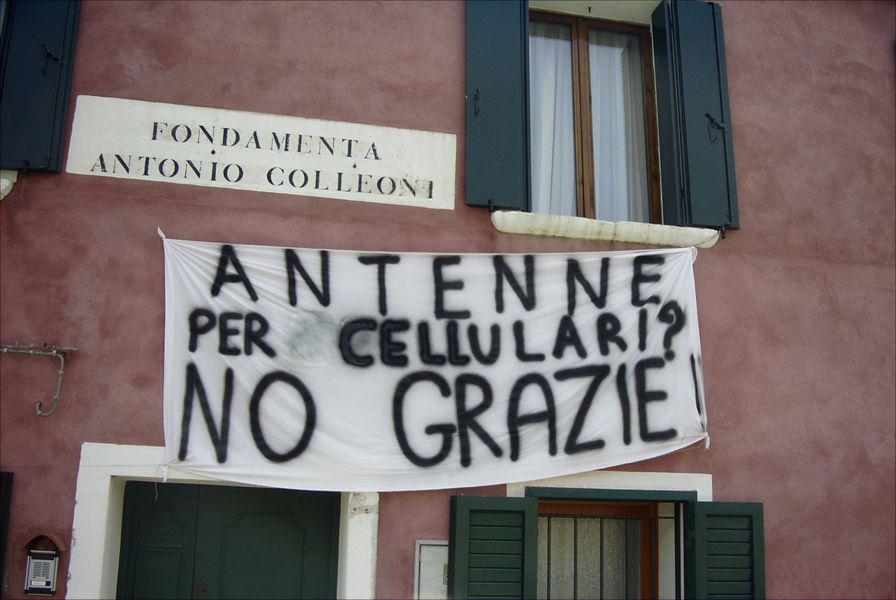 FONDAMENTA
ANTONIO COLLEONI
ANTENNE
PER CELLULARI?
NO GRAZIE!